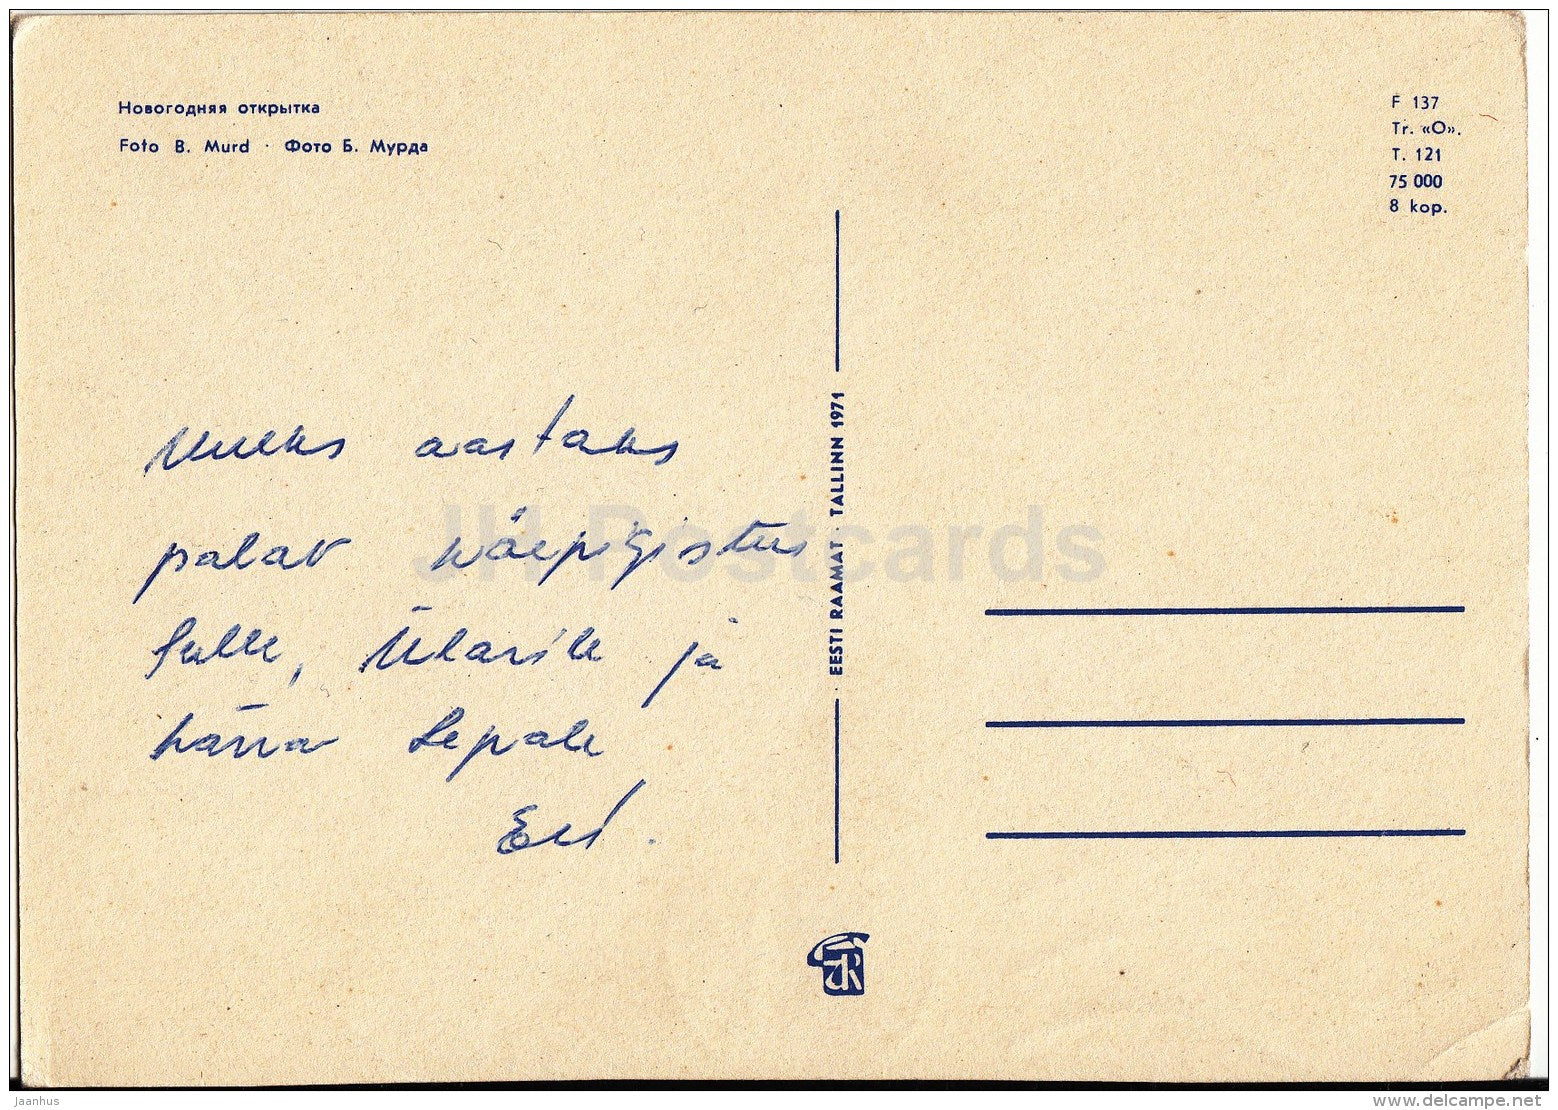 Новогодняя открытка
Foto B. Murd · Фото Б. Мурда
F 137
Tr. «O».
T. 121
75 000
8 kop.
Uueks aastaks
palav käepigistus
Sulle, Ülarile ja
härra Sepale
EESTI RAAMAT · TALLINN 1971
JH Postcards
jaanhus
delcampe.net